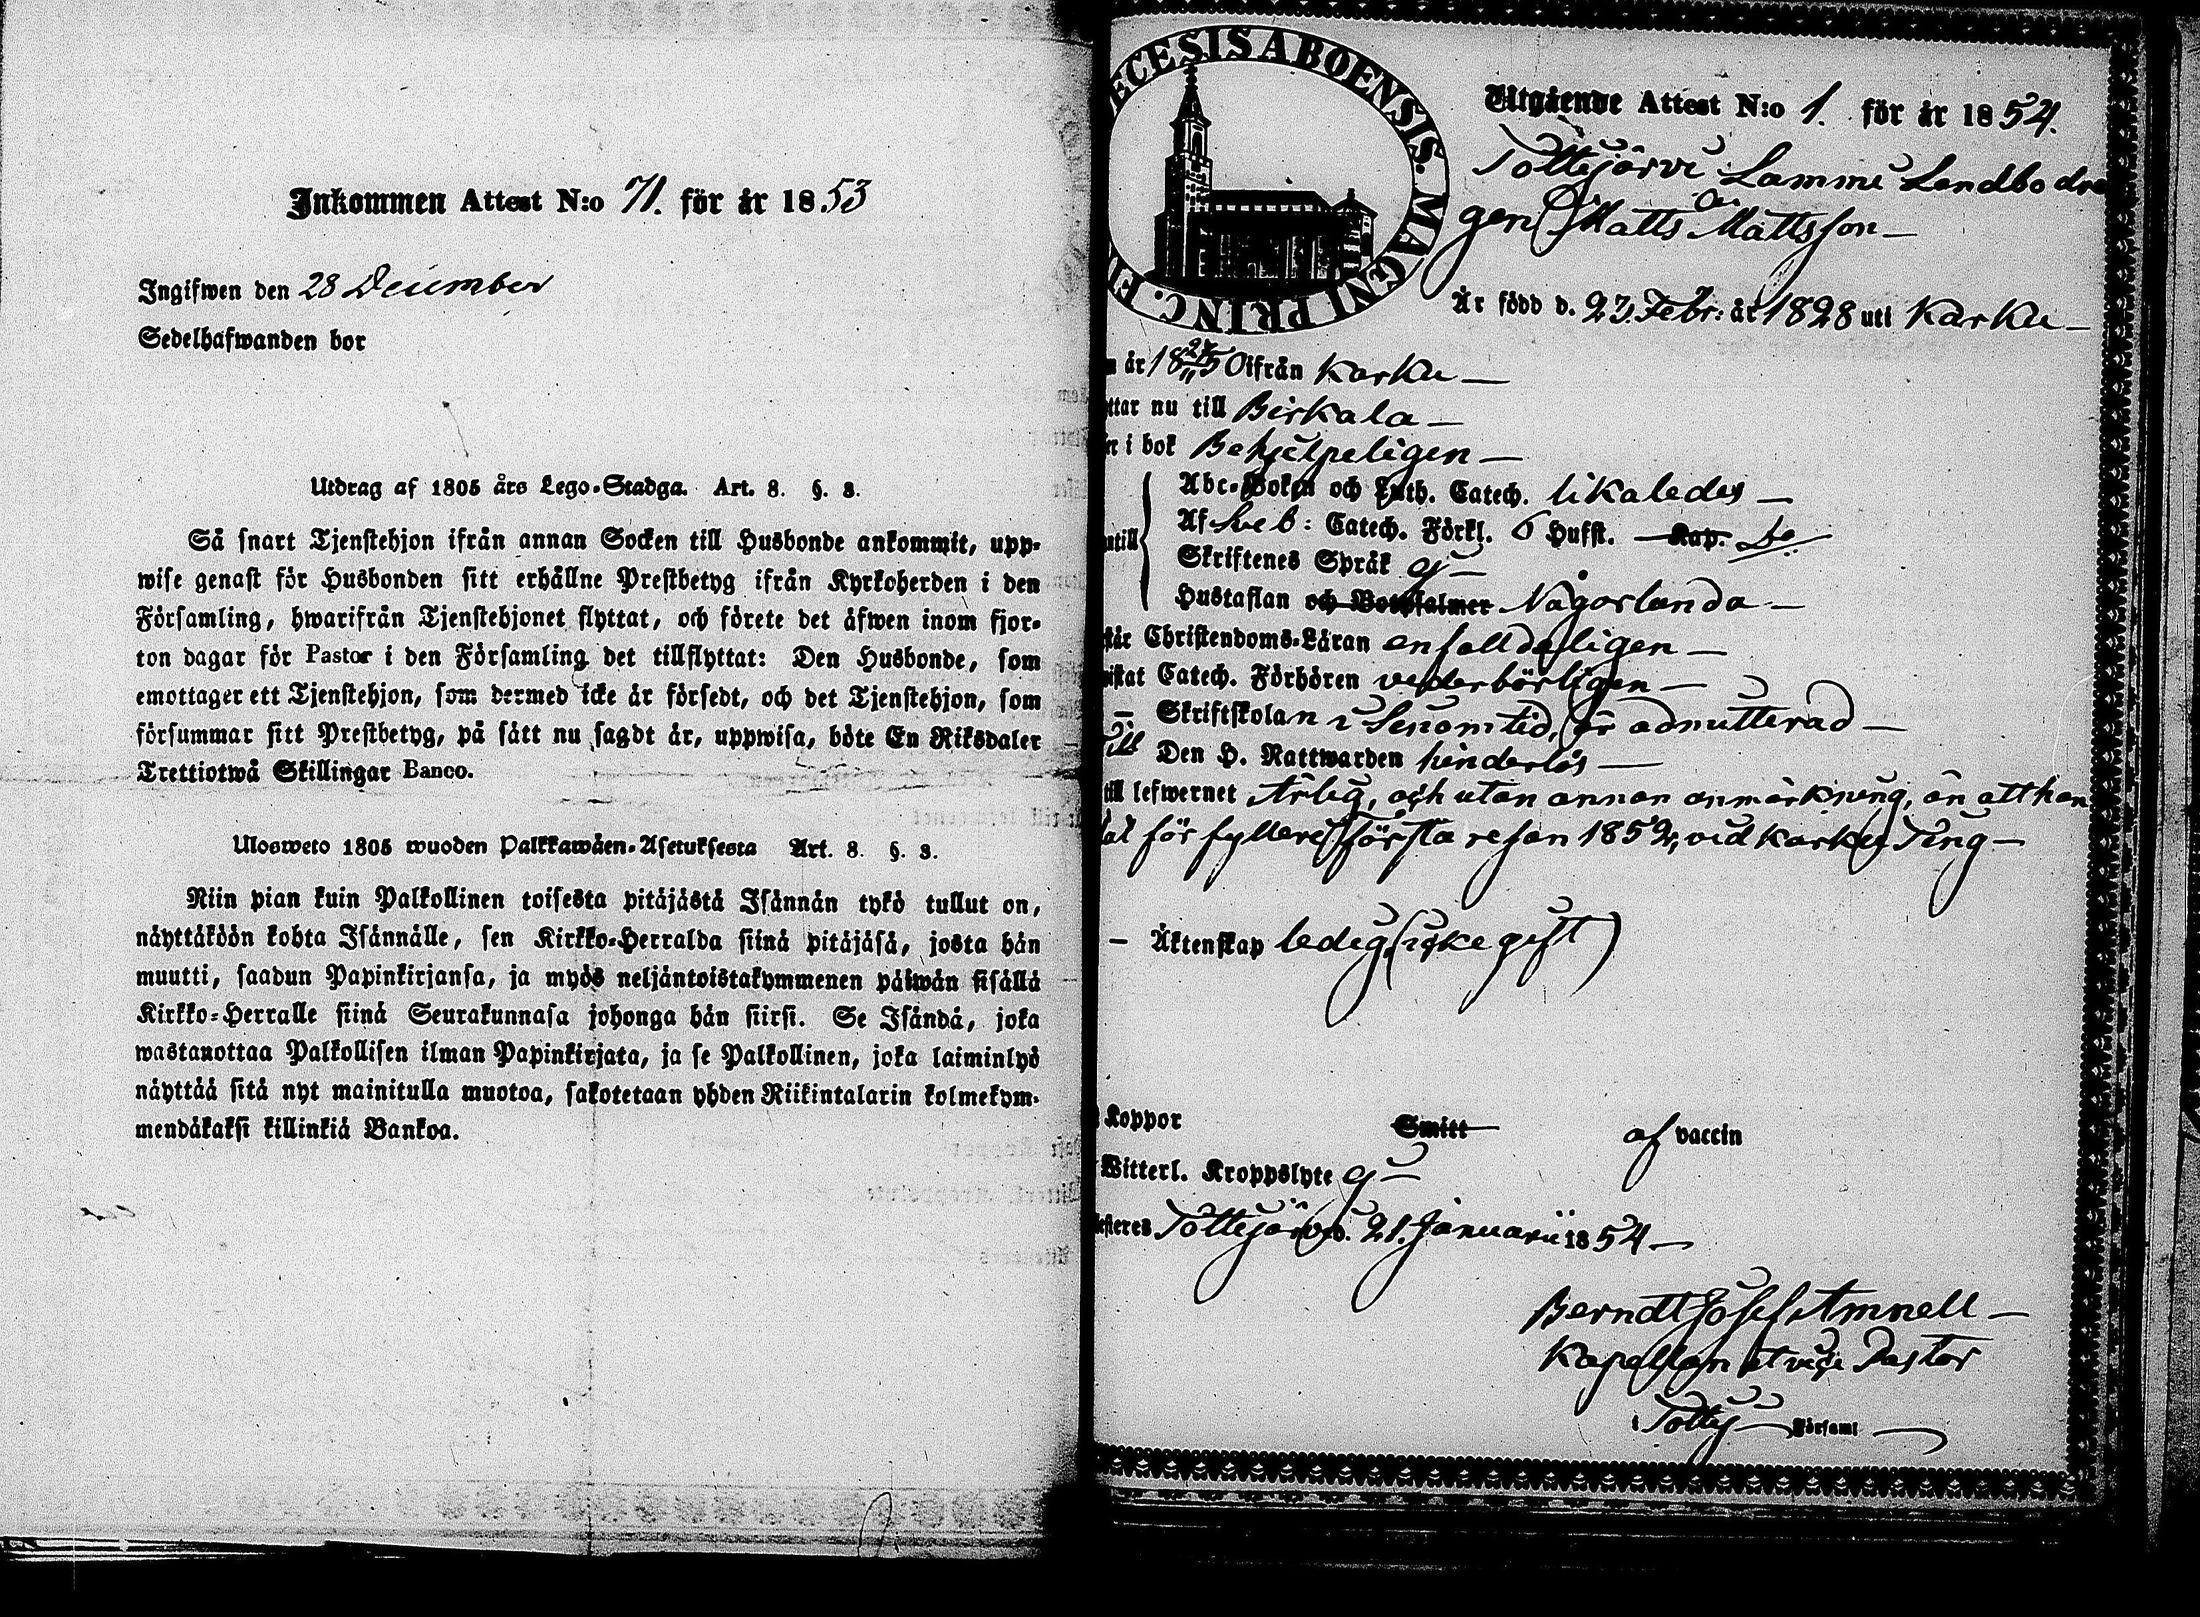 Inkommen Attest N:o 71. för år 1853
Ingifwen den 28 December
Sedelhafwanden bor
Utdrag af 1805 års Lego-Stadga. Art. 8. §. 3.
Så snart Tjenstehjon ifrån annan Socken till Husbonde ankommit, upp-
wise genast för Husbonden sitt erhållne Prestbetyg ifrån Kyrkoherden i den
Församling, hwarifrån Tjenstehjonet flyttat, och förete det äfwen inom fjor-
ton dagar för Pastor i den Församling det tillflyttat: Den Husbonde, som
emottager ett Tjenstehjon, som dermed icke är försedt, och det Tjenstehjon, som
försummar sitt Prestbetyg, på sått nu sagdt är, uppwisa, böte En Riksdaler
Trettiotwå Skillingar Banco.
Ulosweto 1805 wuoden Palkkawäen-Asetuksesta Art. 8. §. 3.
Niin pian kuin Palkollinen toisesta pitäjästä Isännän tykö tullut on,
näyttäköön kohta Isännälle, sen Kirkko-Herralda siinä pitäjäsä, josta hän
muutti, saadun Papinkirjansa, ja myös neljäntoistakymmenen päiwän sisällä
Kirkko-Herralle siinä Seurakunnasa johonga hän siirsi. Se Isändä, joka
wastanottaa Palkollisen ilman Papinkirjata, ja se Palkollinen, joka laiminlyö
näyttää sitä nyt mainitulla muotoa, sakotetaan yhden Riikintalarin kolmekym-
mendäkaksi killinkiä Bankoa.
ECESIS ABOENSIS. MAGNI PRINC. FI
Utgående Attest N:o 1. för år 1854.
Tottijärvi Lammi Landbo dre
gen Matts Mattsson
Är född d. 23. Febr: år 1828 uti Karku
år 1850 ifrån Karku
ttar nu till Birkala
er i bok Behjelpeligen
Abc-Boken och Luth. Catech. likaledes
Af Sveb: Catech. Förkl. 6 Hufst. Kap. Do
Skriftenes Språk ej
ntill
Hustaflan och Botpsalmer Någorlunda
står Christendoms-Läran enfalldeligen
istat Catech. Förhören vederbörligen
Skriftskolan i Sinom tid, är admitterad
Den H. Nattwarden hinderlös
till lefwernet Ärlig, och utan annan anmärkning, än att han
tat för fylleri första resan 1852, vid Karku Ting
Äktenskap ledig (icke gift)
Koppor Smitt af vaccin
Witterl. Kroppslyte ej
esteres Tottijärvi d. 21. Januarii 1854
Berndt Josef Amnell
Kapellan et vice Pastor
i Tottij Församl